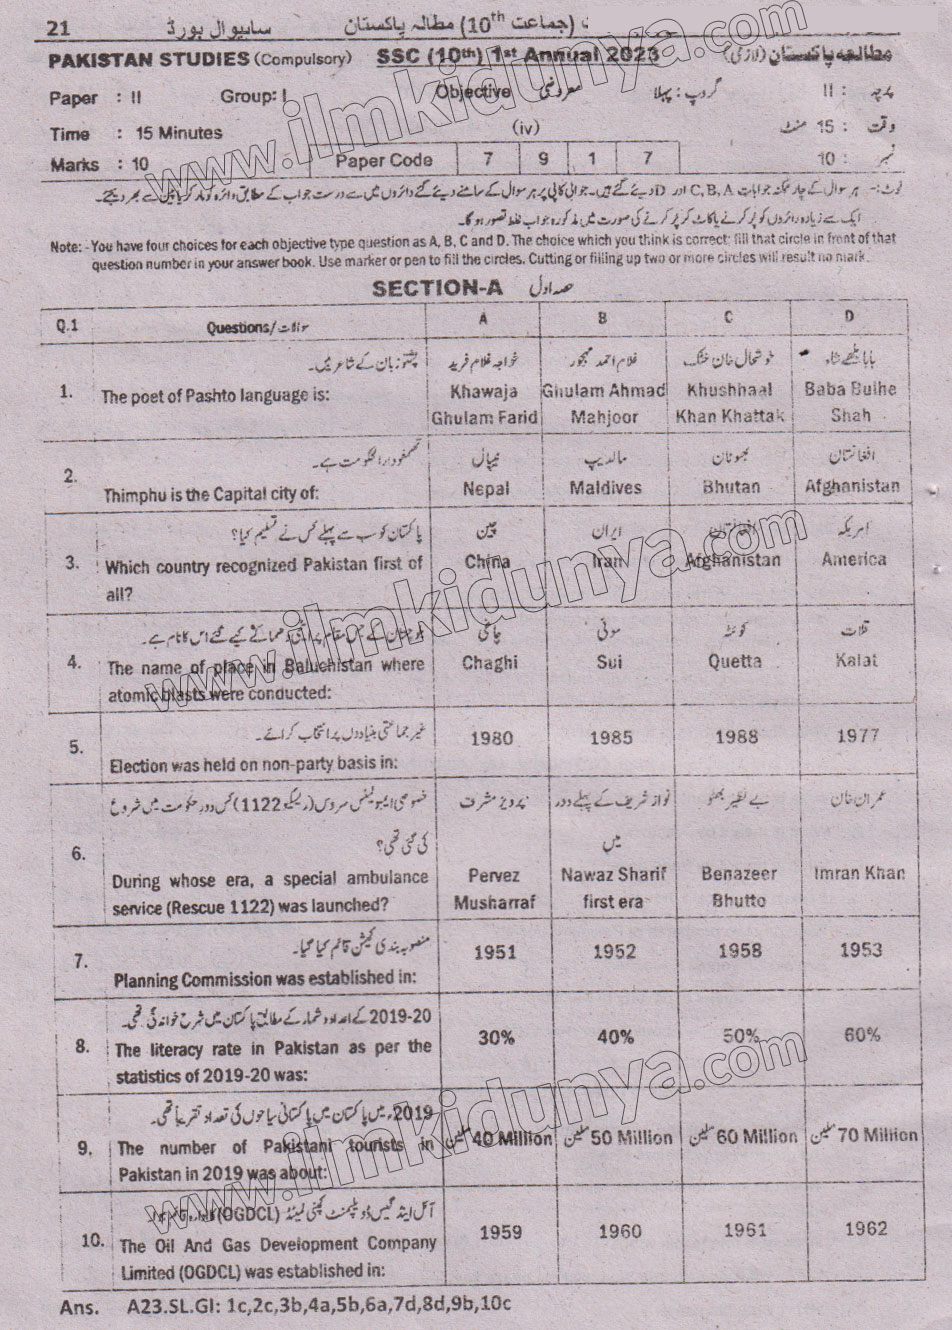 21 ساہیوال بورڈ (جماعت 10th) مطالہ پاکستان
PAKISTAN STUDIES (Compulsory) SSC (10th) 1st Annual 2023 مطالعہ پاکستان (لازمی)
Paper : II Group: I Objective معروضی گروپ : پہلا پرچہ : II
Time : 15 Minutes (iv) وقت : 15 منٹ
Marks : 10 Paper Code 7 9 1 7 نمبر : 10
نوٹ:- ہر سوال کے چار ممکنہ جوابات C, B, A اور D دیئے گئے ہیں۔ جوابی کاپی پر ہر سوال کے سامنے دیئے گئے دائروں میں سے درست جواب کے مطابق دائرہ کو مارکر یا پین سے بھر دیجئے۔
ایک سے زیادہ دائروں کو پُر کرنے یا کاٹ کر پُر کرنے کی صورت میں مذکورہ جواب غلط تصور ہو گا۔
Note:- You have four choices for each objective type question as A, B, C and D. The choice which you think is correct; fill that circle in front of that
question number in your answer book. Use marker or pen to fill the circles. Cutting or filling up two or more circles will result no mark.
SECTION-A حصہ اول
Q.1 Questions/سوالات A B C D
پشتو زبان کے شاعر ہیں۔ خواجہ غلام فرید غلام احمد مہجور خوشحال خان خٹک بابا بلھے شاہ
1. The poet of Pashto language is: Khawaja Ghulam Farid Ghulam Ahmad Mahjoor Khushhaal Khan Khattak Baba Bulhe Shah
تھمفو دارالحکومت ہے۔ نیپال مالدیپ بھوٹان افغانستان
2. Thimphu is the Capital city of: Nepal Maldives Bhutan Afghanistan
پاکستان کو سب سے پہلے کس نے تسلیم کیا؟ چین ایران افغانستان امریکہ
3. Which country recognized Pakistan first of all? China Iran Afghanistan America
بلوچستان کے جس مقام پر ایٹمی دھماکے کیے گئے اس کا نام ہے۔ چاغی سوئی کوئٹہ قلات
4. The name of place in Baluchistan where atomic blasts were conducted: Chaghi Sui Quetta Kalat
غیر جماعتی بنیادوں پر انتخاب کرائے۔
5. Election was held on non-party basis in: 1980 1985 1988 1977
خصوصی ایمبولینس سروس (ریسکیو 1122) کس دور حکومت میں شروع کی گئی تھی؟ پرویز مشرف نواز شریف کے پہلے دور میں بے نظیر بھٹو عمران خان
6. During whose era, a special ambulance service (Rescue 1122) was launched? Pervez Musharraf Nawaz Sharif first era Benazeer Bhutto Imran Khan
منصوبہ بندی کمیشن قائم کیا گیا۔
7. Planning Commission was established in: 1951 1952 1958 1953
2019-20 کے اعداد و شمار کے مطابق پاکستان میں شرح خواندگی تھی۔
8. The literacy rate in Pakistan as per the statistics of 2019-20 was: 30% 40% 50% 60%
2019ء میں پاکستان میں پاکستانی سیاحوں کی تعداد تقریباً تھی۔
9. The number of Pakistani tourists in Pakistan in 2019 was about: 40 Million ملین 50 Million ملین 60 Million ملین 70 Million ملین
آئل اینڈ گیس ڈویلپمنٹ کمپنی لمیٹڈ (OGDCL)
10. The Oil And Gas Development Company Limited (OGDCL) was established in: 1959 1960 1961 1962
Ans. A23.SL.GI: 1c,2c,3b,4a,5b,6a,7d,8d,9b,10c
www.ilmkidunya.com
www.ilmkidunya.com
www.ilmkidunya.com